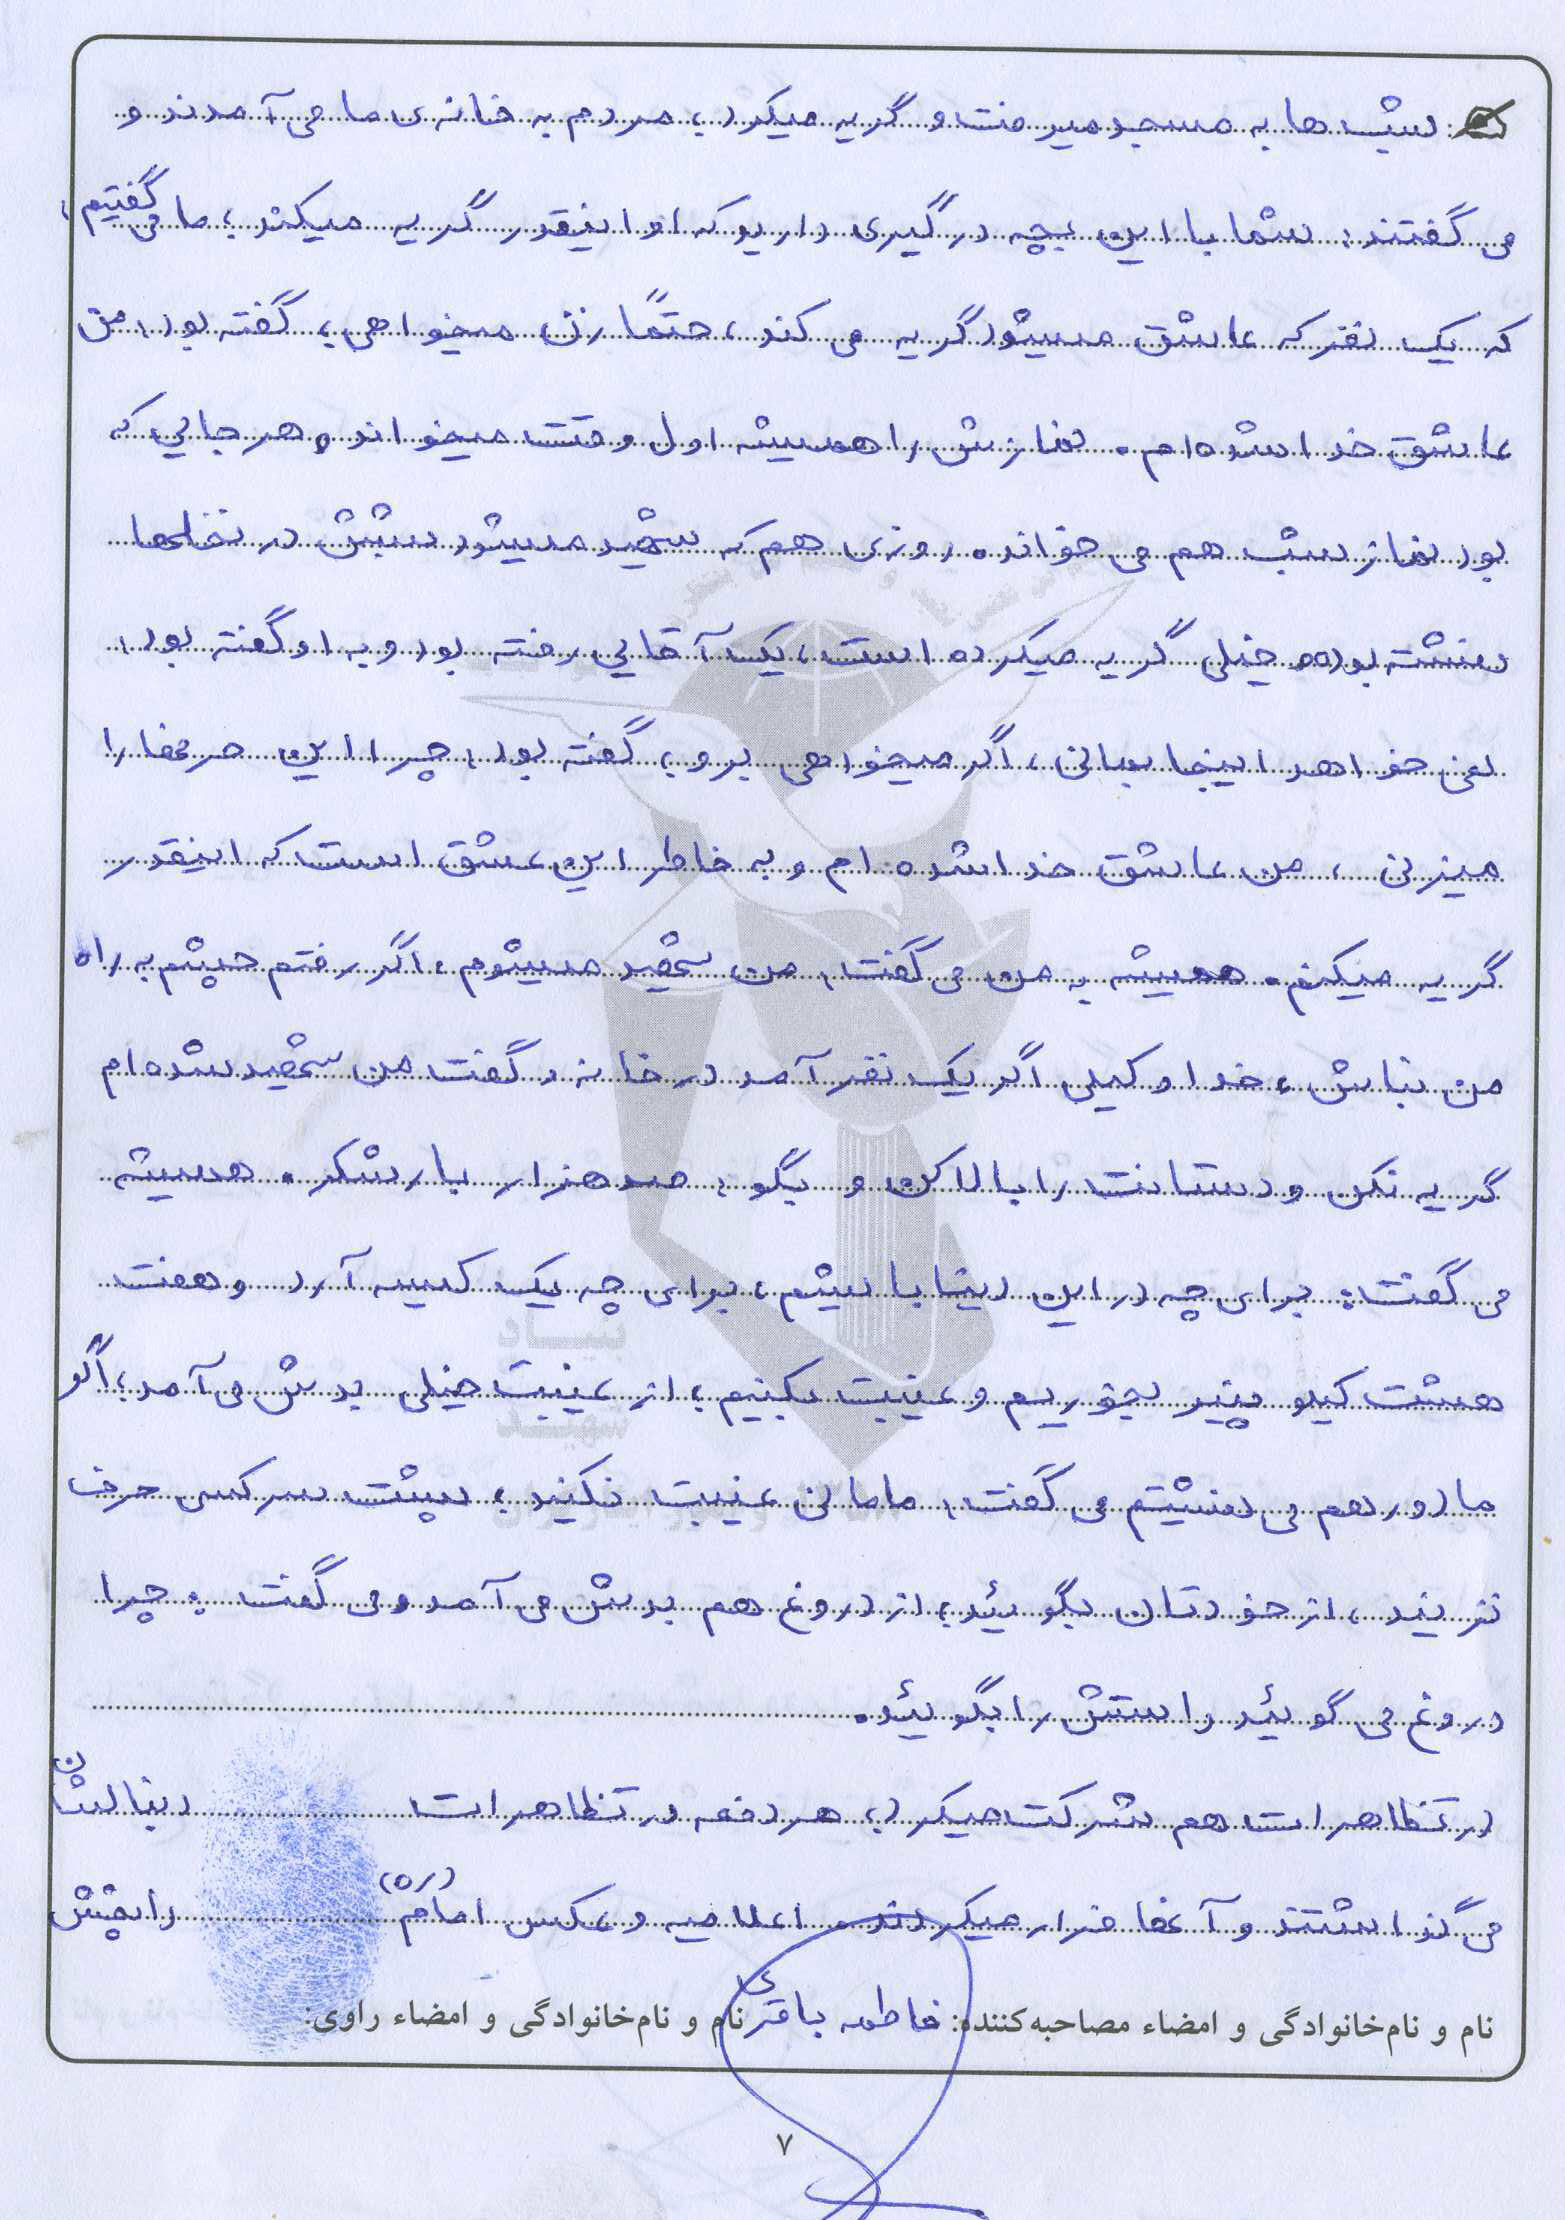 شب ها به مسجد میرفت و گریه میکرد، مردم به خانه ی ما می آمدند و
می گفتند: شما با این بچه درگیری دارید که او اینقدر گریه میکند؛ ما می گفتیم:
که یک نفر که عاشق میشود گریه می کند، حتمًا زن میخواهی، گفته بود: من
عاشق خدا شده ام. نمازش را همیشه اول وقت میخواند، هر جایی که
بود نماز شب هم می خواند. روزی هم که شهید میشود شبش در نخلها
نشسته بوده خیلی گریه میکرده است، یک آقایی رفته بود و به او گفته بود:
نمی خواهد اینجا بمانی، اگر میخواهی برو، گفته بود: چرا این حرفها را
میزنی، من عاشق خدا شده ام و به خاطر این عشق است که اینقدر
گریه میکنم. همیشه به من می گفت: من شهید میشوم، اگر رفتم چشم به راه
من نباش، خدا وکیلی اگر یک نفر آمد در خانه و گفت من شهید شده ام
گریه نکن و دستانت را بالا کن و بگو: صد هزار بار شکر. همیشه
می گفت: برای چه در این دنیا باشیم، برای چه یک کیسه آرد و هفت
هشت کیلو پنیر بخوریم و غیبت بکنیم، از غیبت خیلی بدش می آمد، اگر
ما دور هم می نشیتم می گفت: مامان غیبت نکنید، پشت سر کسی حرف
نزنید، از خودتان بگوئید، از دروغ هم بدش می آمد و می گفت: چرا
دروغ می گوئید راستش را بگوئید.
در تظاهرات هم شرکت میکرد، هر دفعه در تظاهرات دنبالشان
می گذاشتند و آنها فرار میکردند. اعلامیه و عکس امام (ره) را پخش
نام و نام‌خانوادگی و امضاء مصاحبه‌کننده: فاطمه باقری نام و نام‌خانوادگی و امضاء راوی:
۷
بنیاد
شهید